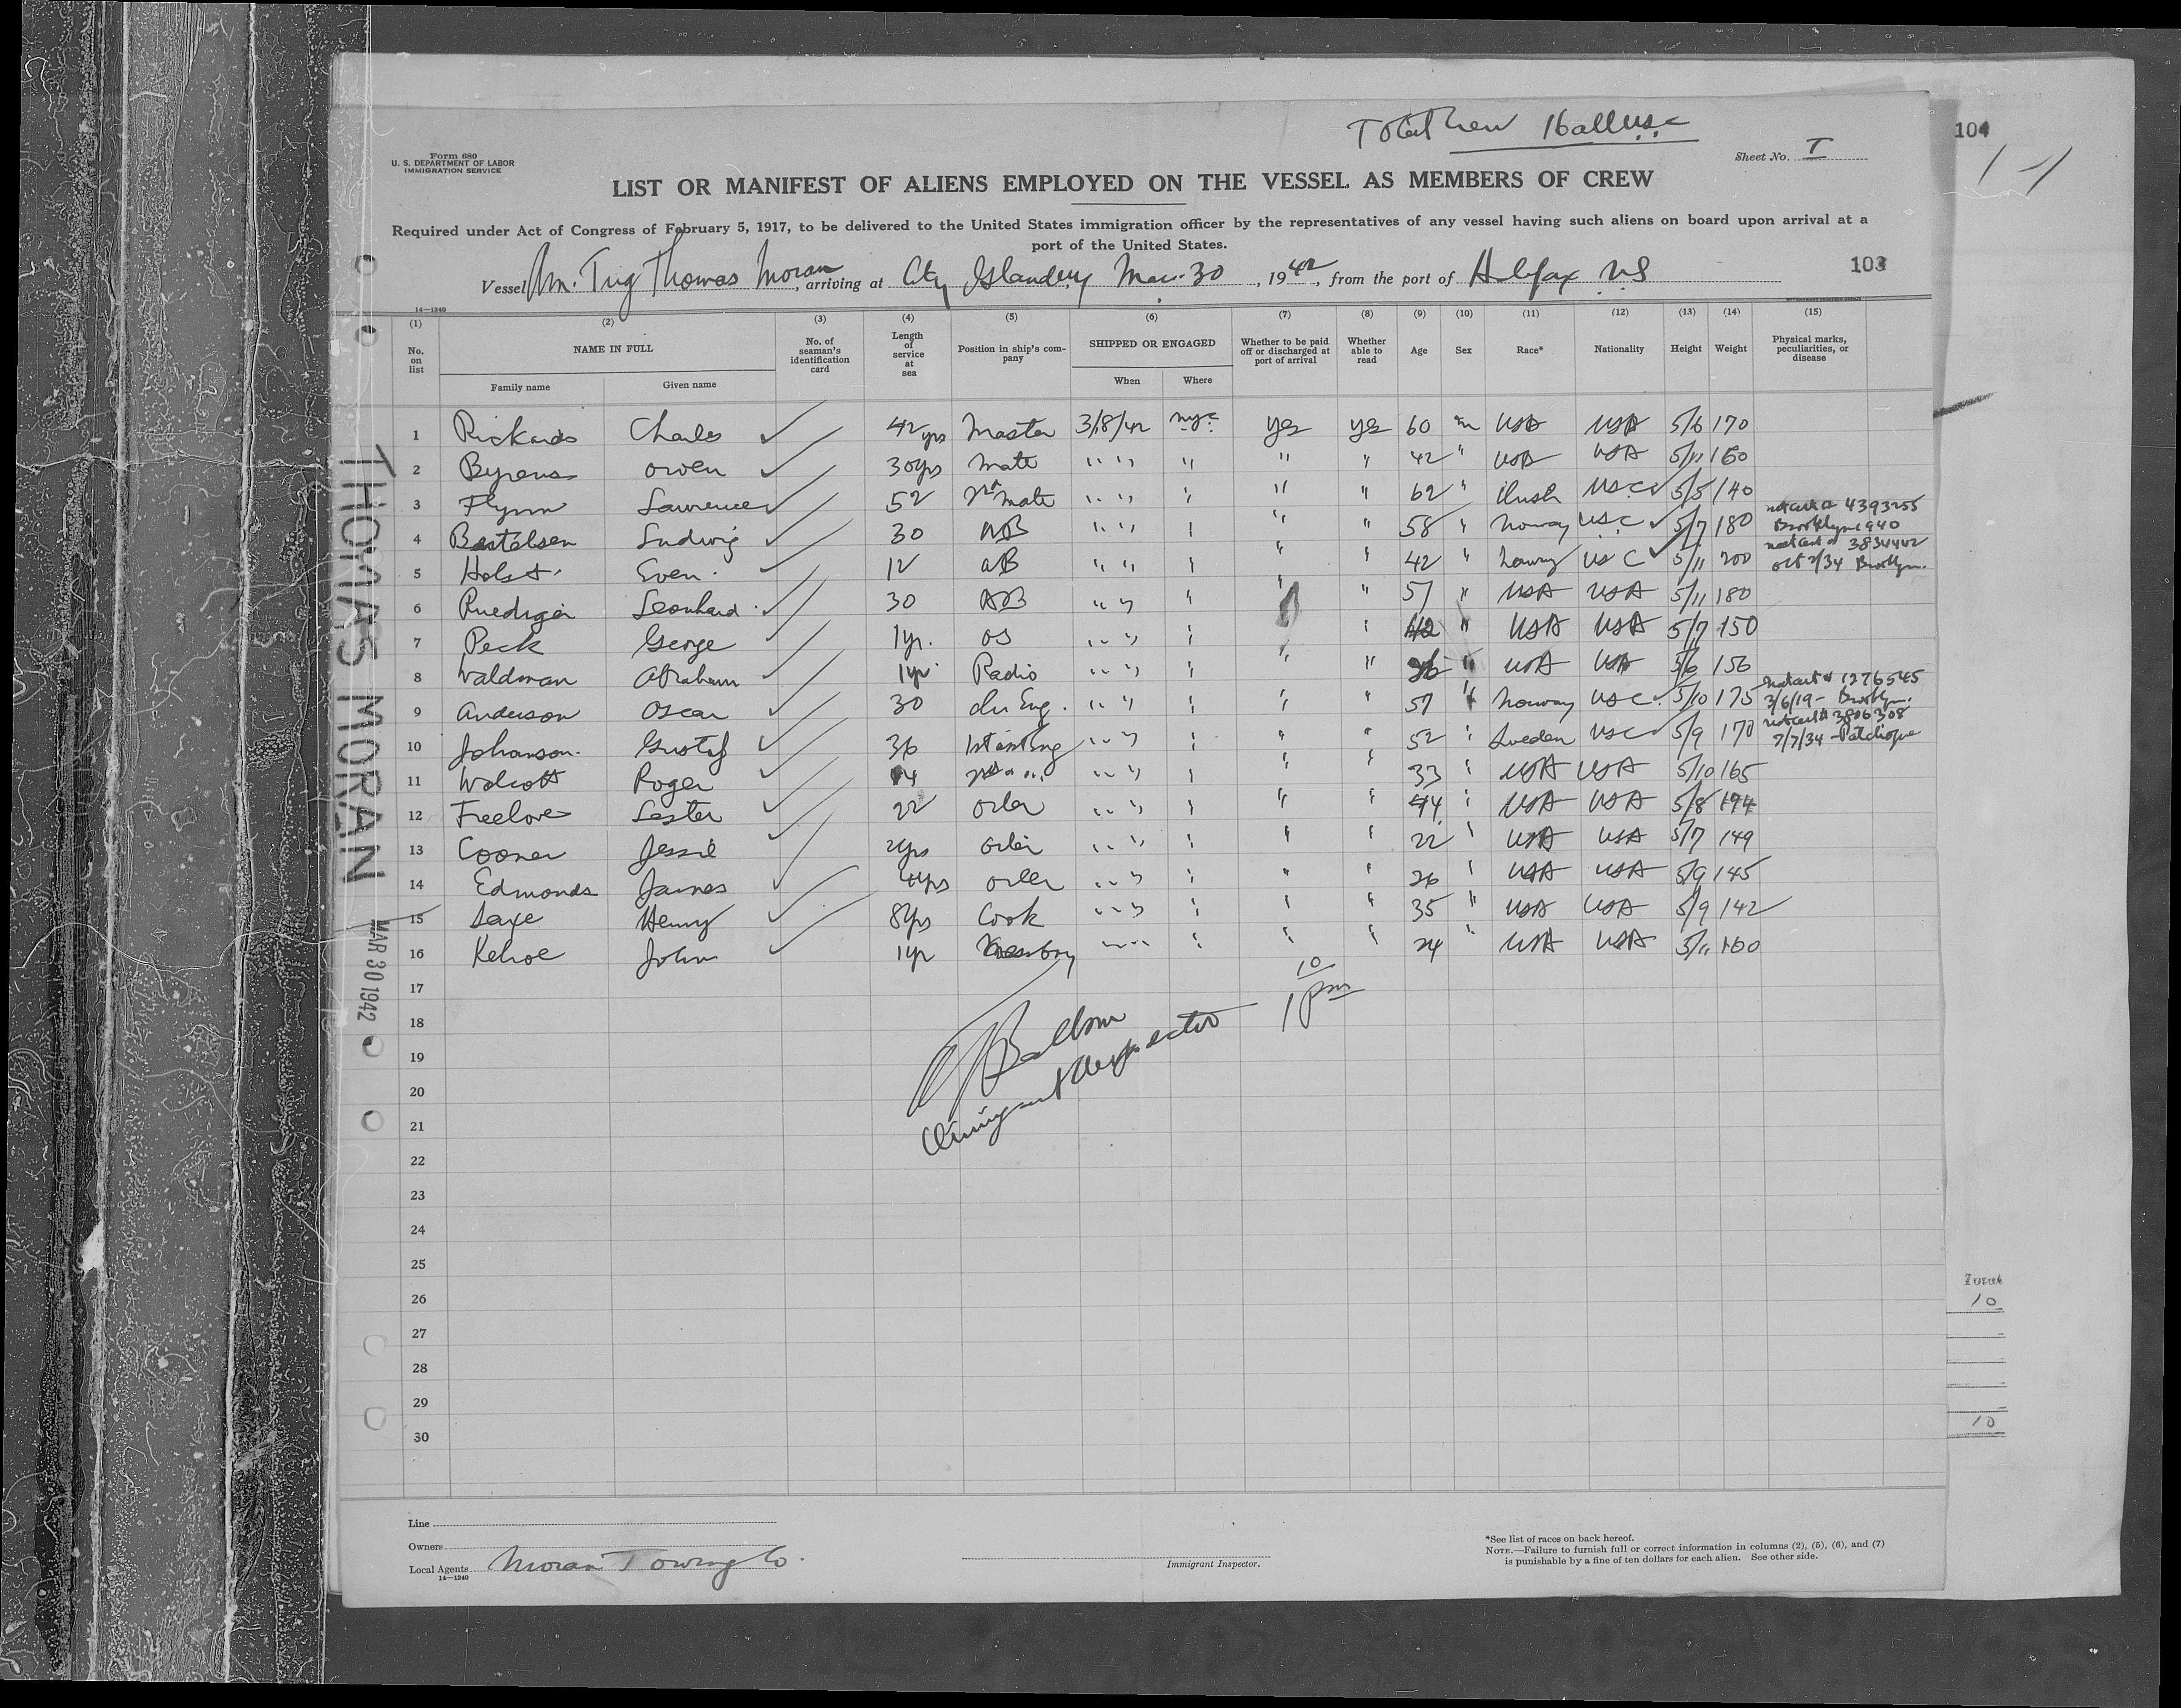 Total Crew 16 all USC
104
Form 680
U. S. DEPARTMENT OF LABOR
IMMIGRATION SERVICE
Sheet No. I
1-1
LIST OR MANIFEST OF ALIENS EMPLOYED ON THE VESSEL AS MEMBERS OF CREW
Required under Act of Congress of February 5, 1917, to be delivered to the United States immigration officer by the representatives of any vessel having such aliens on board upon arrival at a
port of the United States.
Vessel Am. Tug Thomas Moran, arriving at City Island NY Mar. 30, 1942, from the port of Halifax NS
103
14—1240
(1) (2) (3) (4) (5) (6) (7) (8) (9) (10) (11) (12) (13) (14) (15)
No. on list NAME IN FULL No. of seaman's identification card Length of service at sea Position in ship's company SHIPPED OR ENGAGED Whether to be paid off or discharged at port of arrival Whether able to read Age Sex Race* Nationality Height Weight Physical marks, peculiarities, or disease
Family name Given name When Where
1 Rickards Charles ✓ 42 yrs Master 3/18/42 NYC yes yes 60 m USA USA 5/6 170
2 Byrens Owen ✓ 30yrs Mate " " " " " 42 " USA USA 5/11 160
3 Flynn Lawrence ✓ 52 2nd Mate " " " " " 62 " Irish USC ✓ 5/5 140
4 Bertelsen Ludwig ✓ 30 AB " " " " " 58 " Norway USC ✓ 5/7 180 nat cert # 4393255 Brooklyn 1940
5 Holst Even ✓ 12 AB " " " " " 42 " Norway USC ✓ 5/11 200 nat cert # 3834442 Oct 2/34 Brooklyn
6 Ruediger Leonhard ✓ 30 AB " " " " " 57 " USA USA 5/11 180
7 Peck George ✓ 1yr. OS " " " " " " USA USA 5/7 150
8 Waldman Abraham ✓ 1yr Radio " " " " " " USA USA 5/6 156
9 Anderson Oscar ✓ 30 Ch Eng. " " " " " 57 " Norway USC. ✓ 5/10 175 nat cert # 1276545 3/6/19 - Brooklyn.
10 Johanson. Gustaf ✓ 36 1st ast Eng " " " " " 52 " Sweden USC ✓ 5/9 170 nat cert # 3806308 7/7/34 - Patchogue
11 Wolcott Roger ✓ 14 2nd " " " " " " " 33 " USA USA 5/10 165
12 Freelove Lester ✓ 22 Oiler " " " " " 44 " USA USA 5/8 194
13 Cooner Jessie ✓ 2yrs Oiler " " " " " 22 " USA USA 5/7 149
14 Edmonds James ✓ 4yrs Oiler " " " " " 26 " USA USA 5/9 145
15 Saxe Henry ✓ 8yrs Cook " " " " " 35 " USA USA 5/9 142
16 Kehoe John ✓ 1yr Messboy " " " " " 24 " USA USA 5/11 160
17
18
19
20
21
22
23
24
25
26
27
28
29
30
10
1 pm
Immigrant Inspector
THOMAS MORAN
MAR 30 1942
Total
10
10
Line
Owners
Local Agents Moran Towing Co.
14—1240
Immigrant Inspector.
*See list of races on back hereof.
NOTE.—Failure to furnish full or correct information in columns (2), (5), (6), and (7)
is punishable by a fine of ten dollars for each alien. See other side.